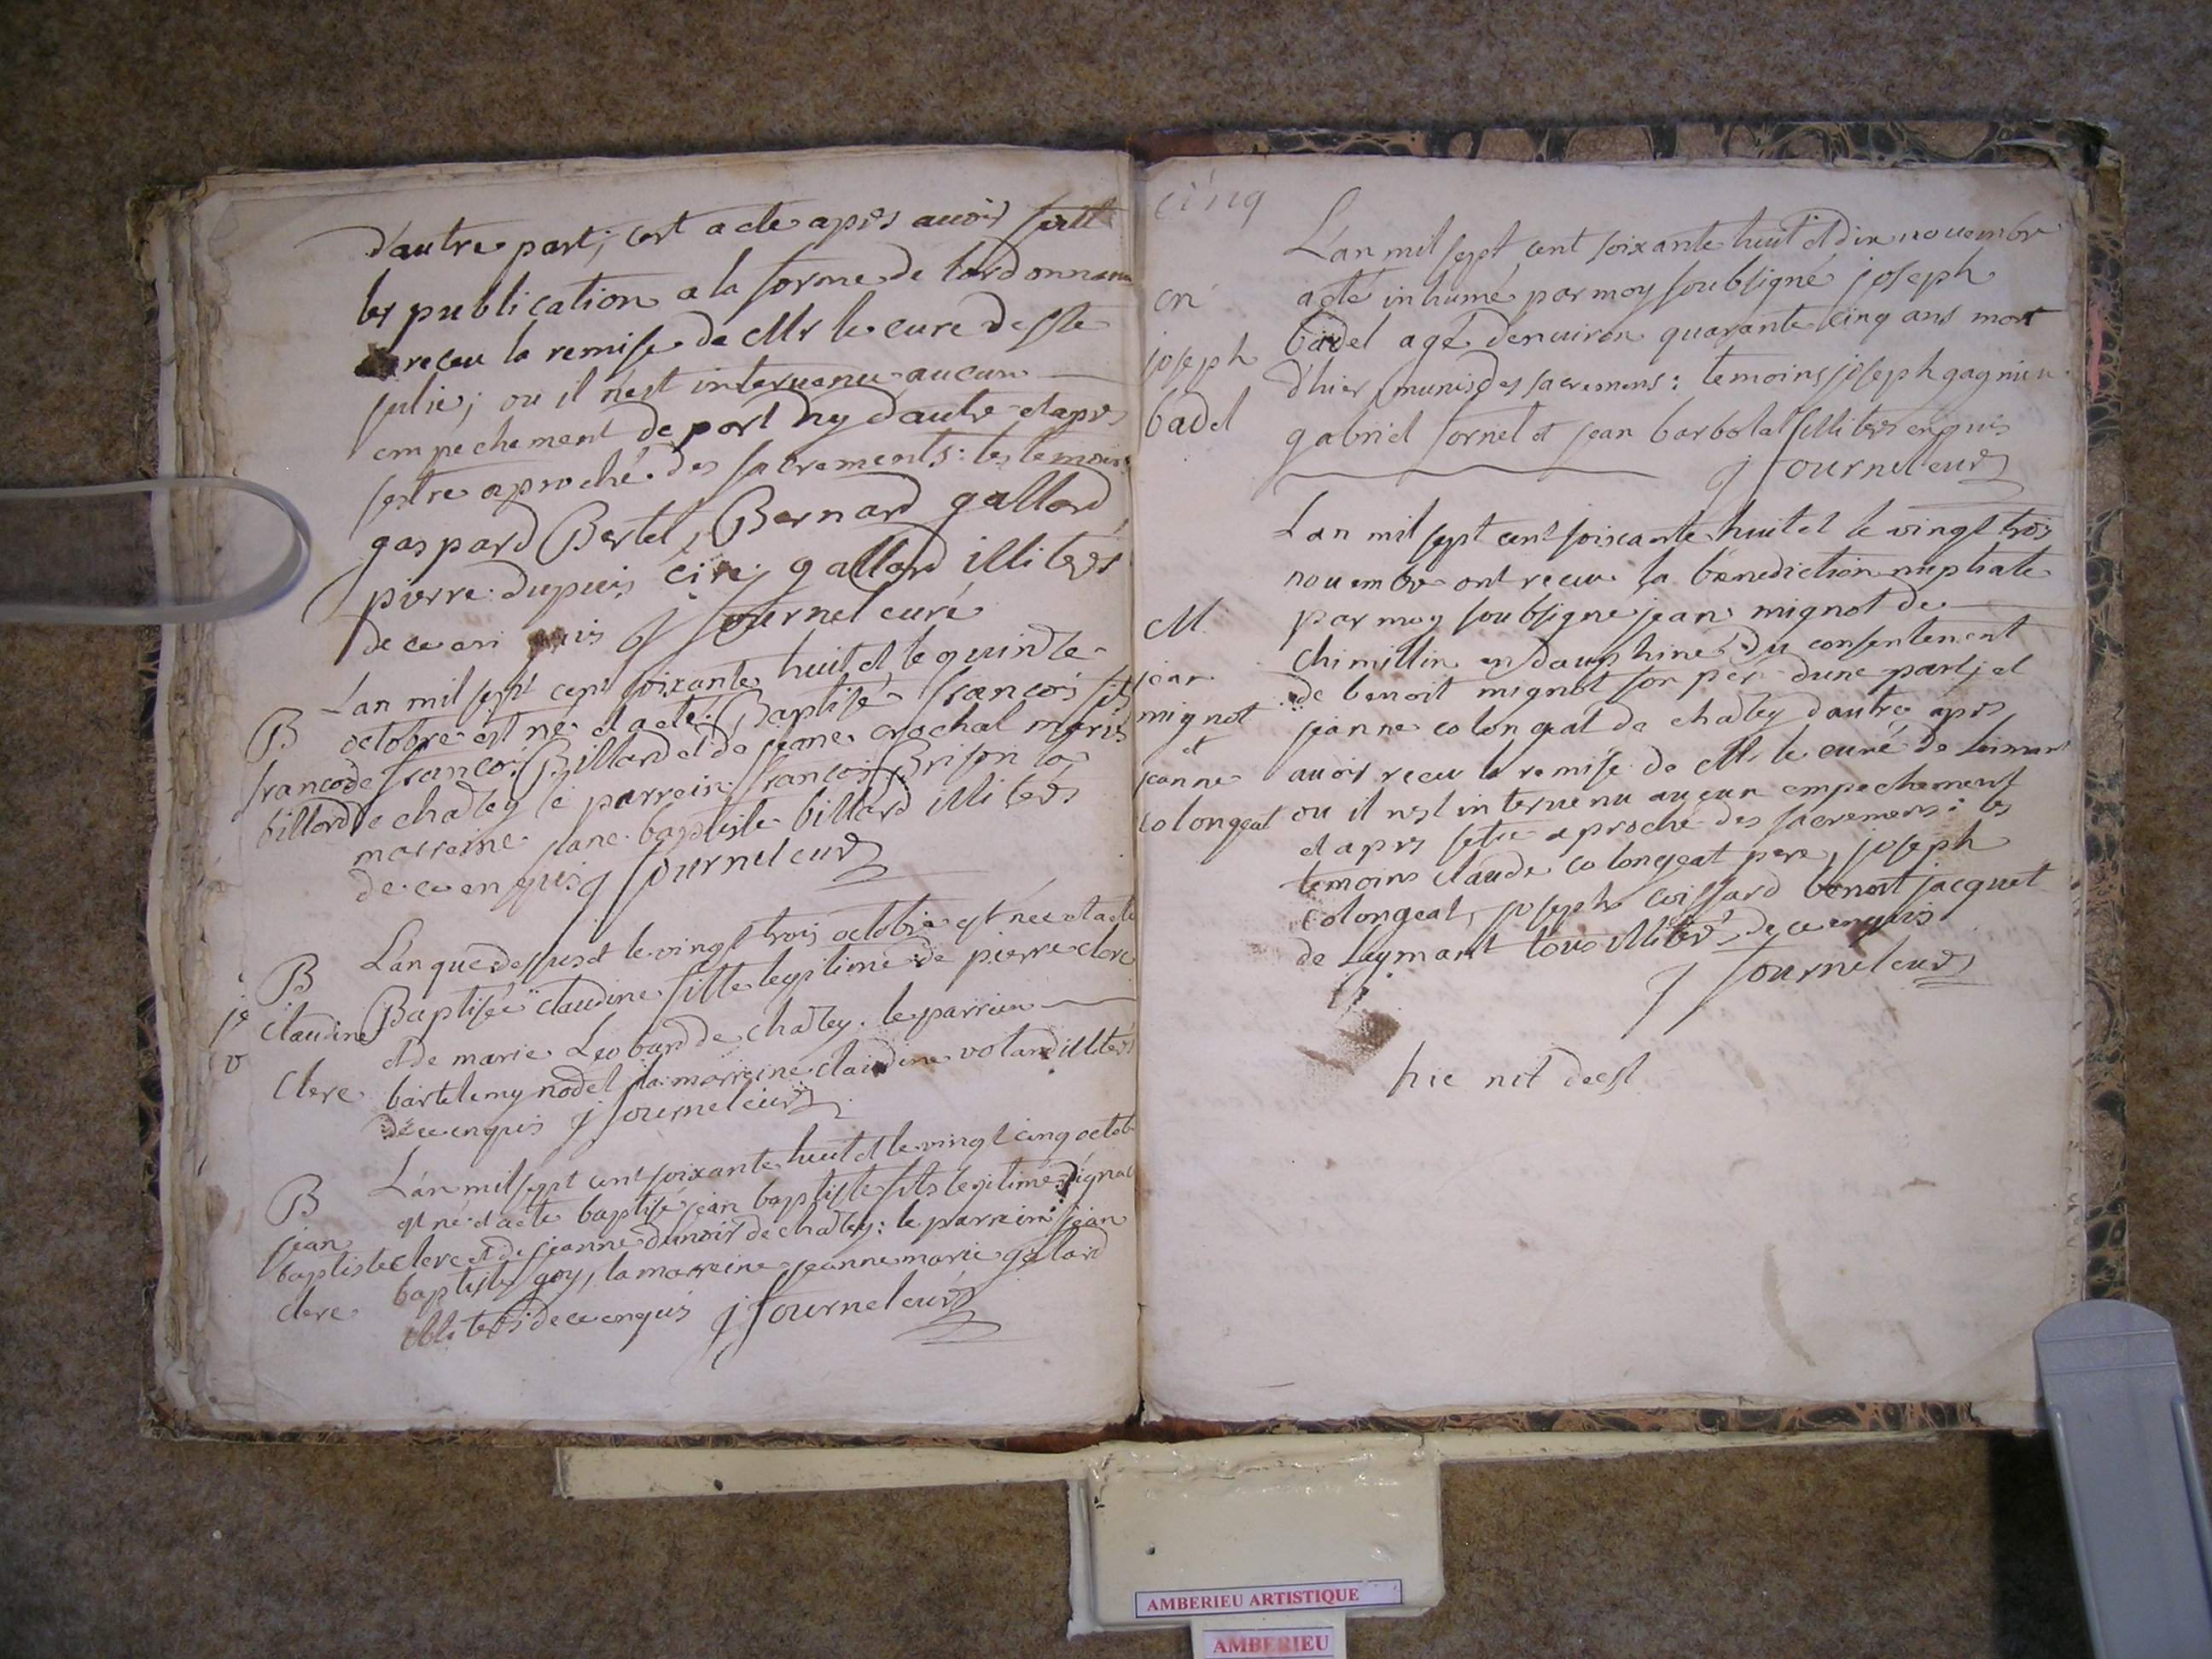 d'autre part; cest acte apres avoir faitt
les publication a la forme de lordonnance
receu la remise de Mr le cure de Ste
julie; ou il n'est intervenu aucun
empechement de part ny d'autre et apres
sestre aproché des sacrements: les temoins
gaspard Bertet, Bernard gallard
pierre dupuis gallard illiterés
de ce enquis j fournel curé
Lan mil sept cent soixante huit et le quinze
B octobre est né et a eté Baptisé francois fils
franco de francois Billard et de jeane crochat mariés
billard de chazey le parrein francois Brison la
marreine jane baptiste billard illiterés
de ce enquis j fournel curé
Lan que dessus et le vingt trois octobre est née et a eté
B Baptisée claudine fille legitime de pierre clerc
claudine et de marie Leobard de chazey. le parrien
clerc bartelemy nodet la marreine claudine voland illiterés
de ce enquis j fournel curé
Lan mil sept cent soixante huit et le vingt cinq octob
B est né et a eté baptisé jean baptiste fils legitime dignac
jean
baptiste clerc et de jeanne dunoir de chazey: le parrein jean
clerc baptiste goy, la marreine jeanne marie galard
illiterés de ce enquis j fournel curé
cinq
Lan mil sept cent soixante huit et dix novembre
en a eté inhumé par moy soubsigné joseph
joseph badel agé denviron quarante cinq ans mort
badel d'hier munis des sacremens: temoins joseph gagnieu
gabriel fornel et jean barbolat illiterés enquis
j fournel curé
Lan mil sept cent soixante huit et le vingt trois
novembre ont receu la bénediction nuptiale
M. par moy soubsigné jean mignot de
chimillin en dauphiné du consentement
jean de benoit mignot son per dune part; et
mignot jeanne colongeat de chazey dautre apres
et avoir receu la remise de Mr le curé de leimant
jeanne ou il nest intervenu aucun empechement
colongeat et apres setre aproché des sacremens: les
temoins claude colongeat pere, joseph
colongeat, joseph coissard benoit jacquet
de Leymant tous illiterés de ce enquis
j fournel curé
hic nil deest
AMBERIEU ARTISTIQUE
AMBERIEU